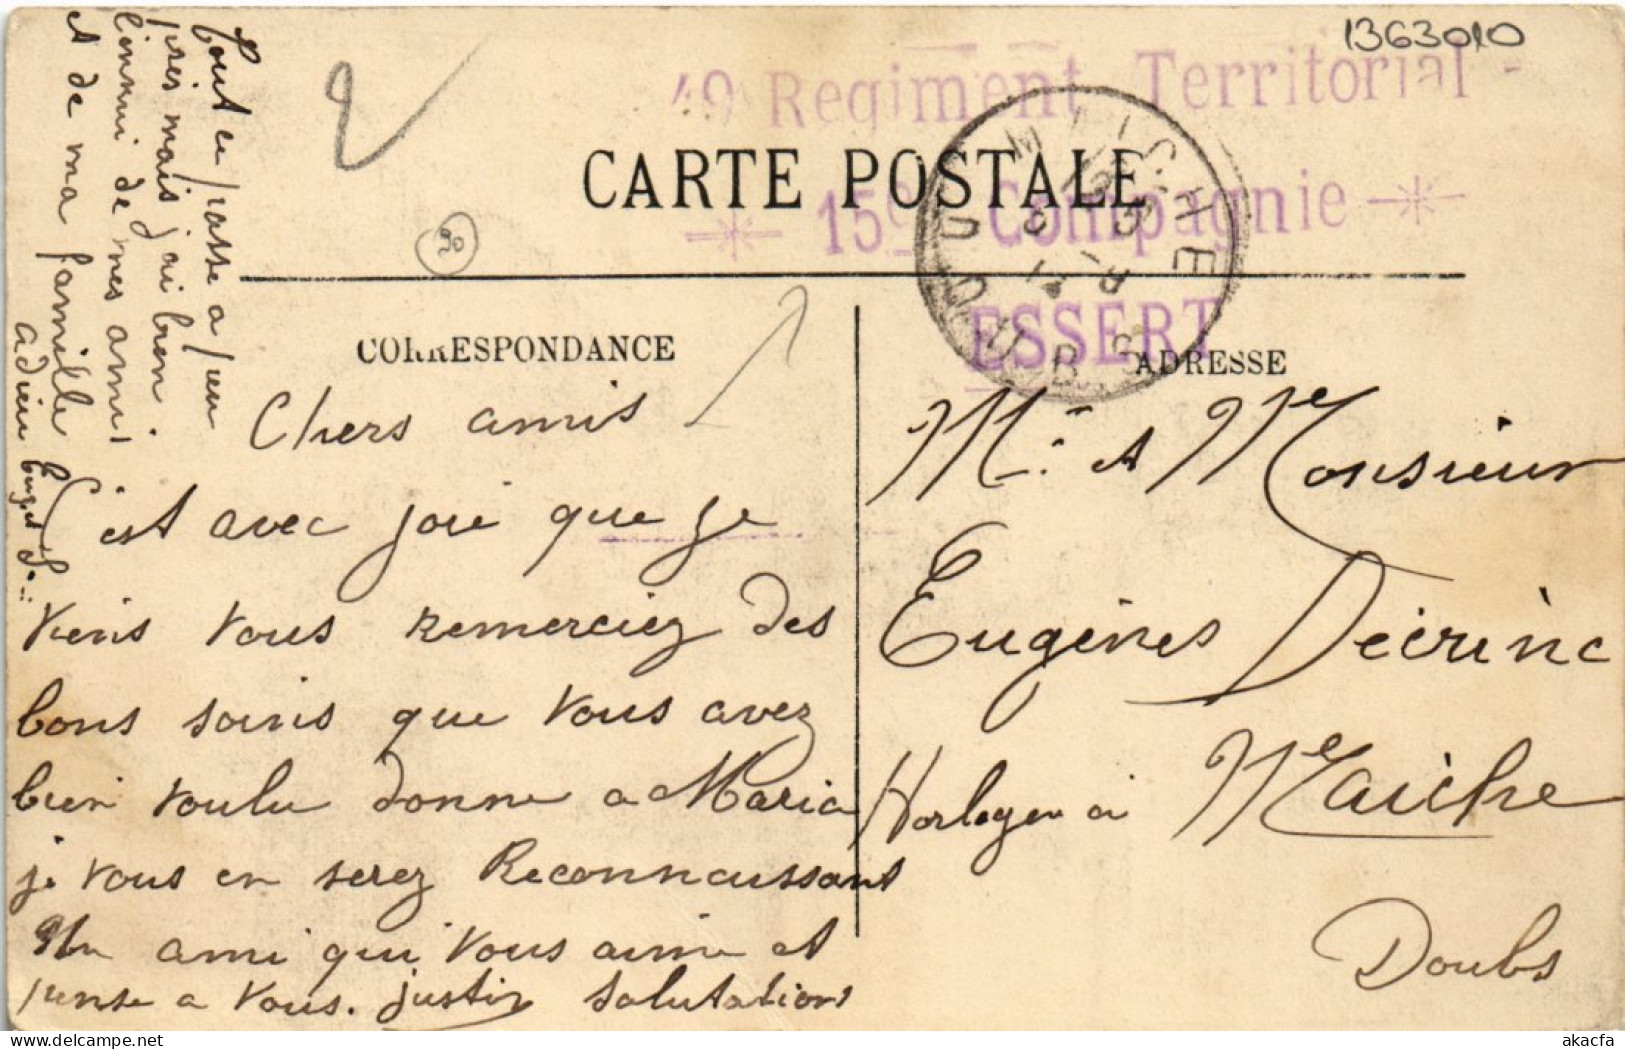 1363010
49 Regiment Territorial
CARTE POSTALE
15e Compagnie
ESSERT
MAICHE
DOUBS
90
CORRESPONDANCE
ADRESSE
Chers amis
C'est avec joie que je
viens vous remerciez des
bons soins que vous avez
bien voulu donne a Maria
je vous en serez Reconnaissant
Un ami qui vous aime et
pense a vous. justin salutations
tout ce passe a peu
pres mais j'ai bien
l'ennui de mes ami
et de ma famille
adieu
Me et Monsieur
Eugènes
Horloger à Maiche
Doubs
delcampe.net
akacfa